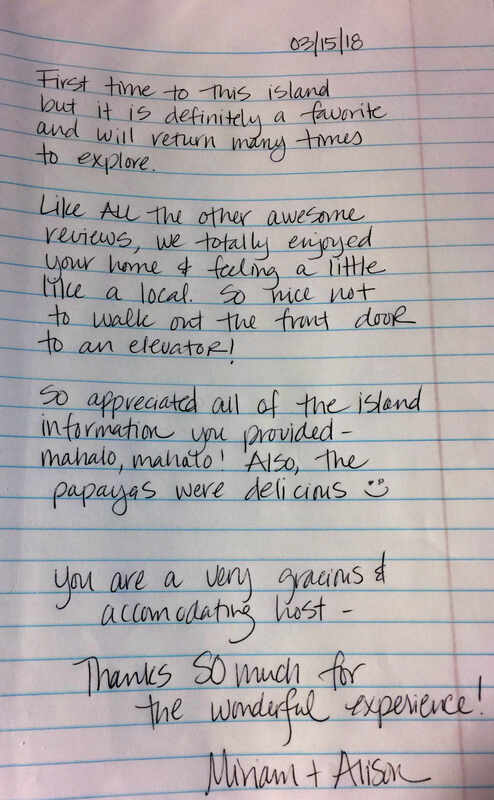 03/15/18
First time to this island
but it is definitely a favorite
and will return many times
to explore.
Like ALL the other awesome
reviews, we totally enjoyed
your home & feeling a little
like a local. So nice not
to walk out the front door
to an elevator!
So appreciated all of the island
information you provided -
mahalo, mahalo! Also, the
papayas were delicious
you are a very gracious &
accomodating host -
Thanks SO much for
the wonderful experience!
Miriam + Alison